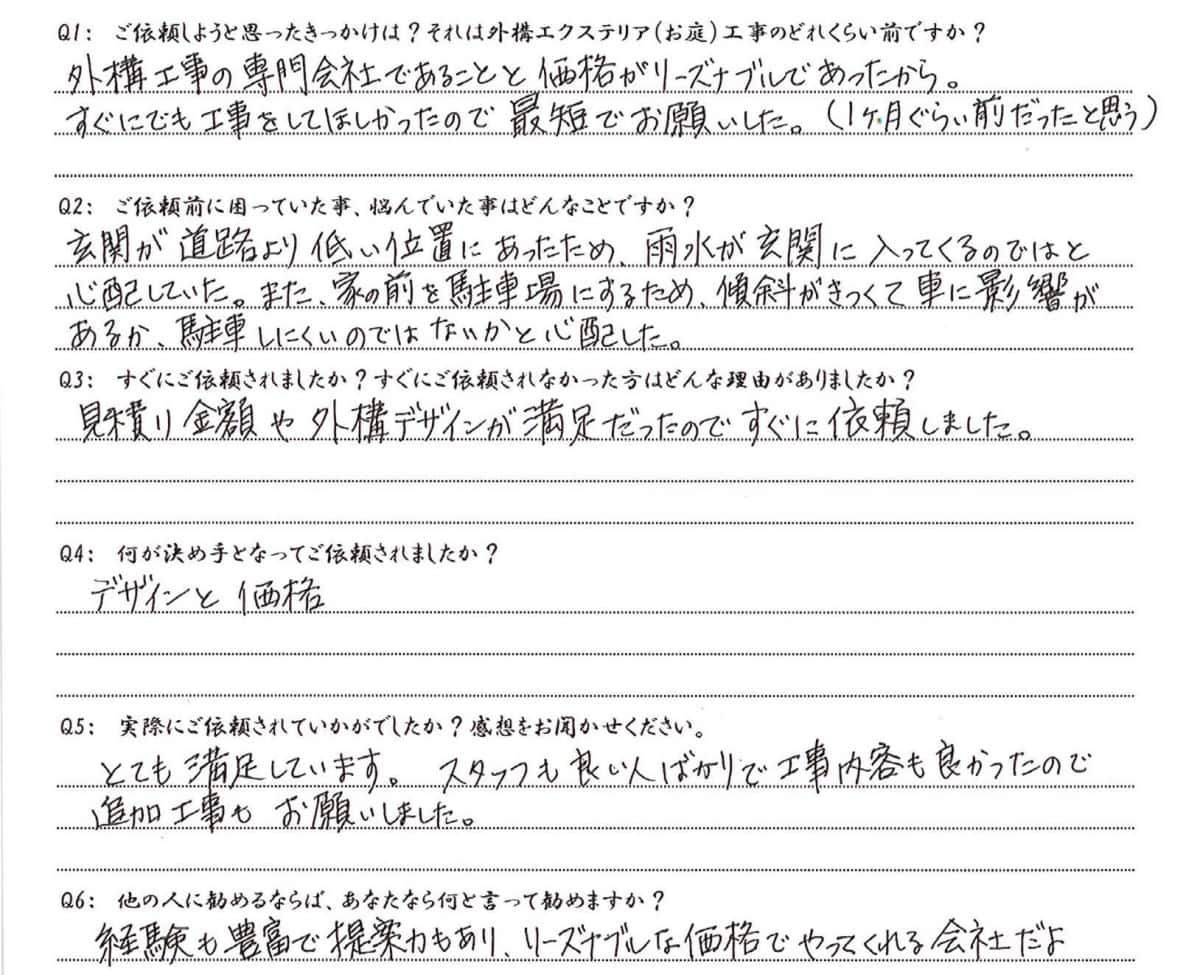 Q1: ご依頼しようと思ったきっかけは?それは外構エクステリア(お庭)工事のどれくらい前ですか?
外構工事の専門会社であることと価格がリーズナブルであったから。
すぐにでも工事をしてほしかったので最短でお願いした。(1ヶ月ぐらい前だったと思う)
Q2: ご依頼前に困っていた事、悩んでいた事はどんなことですか?
玄関が道路より低い位置にあったため、雨水が玄関に入ってくるのではと
心配していた。また、家の前を駐車場にするため、傾斜がきつくて車に影響が
あるか、駐車しにくいのではないかと心配した。
Q3: すぐにご依頼されましたか?すぐにご依頼されなかった方はどんな理由がありましたか?
見積り金額や外構デザインが満足だったのですぐに依頼しました。
Q4: 何が決め手となってご依頼されましたか?
デザインと価格
Q5: 実際にご依頼されていかがでしたか?感想をお聞かせください。
とても満足しています。スタッフも良い人ばかりで工事内容も良かったので
追加工事もお願いしました。
Q6: 他の人に勧めるならば、あなたなら何と言って勧めますか?
経験も豊富で提案力もあり、リーズナブルな価格でやってくれる会社だよ